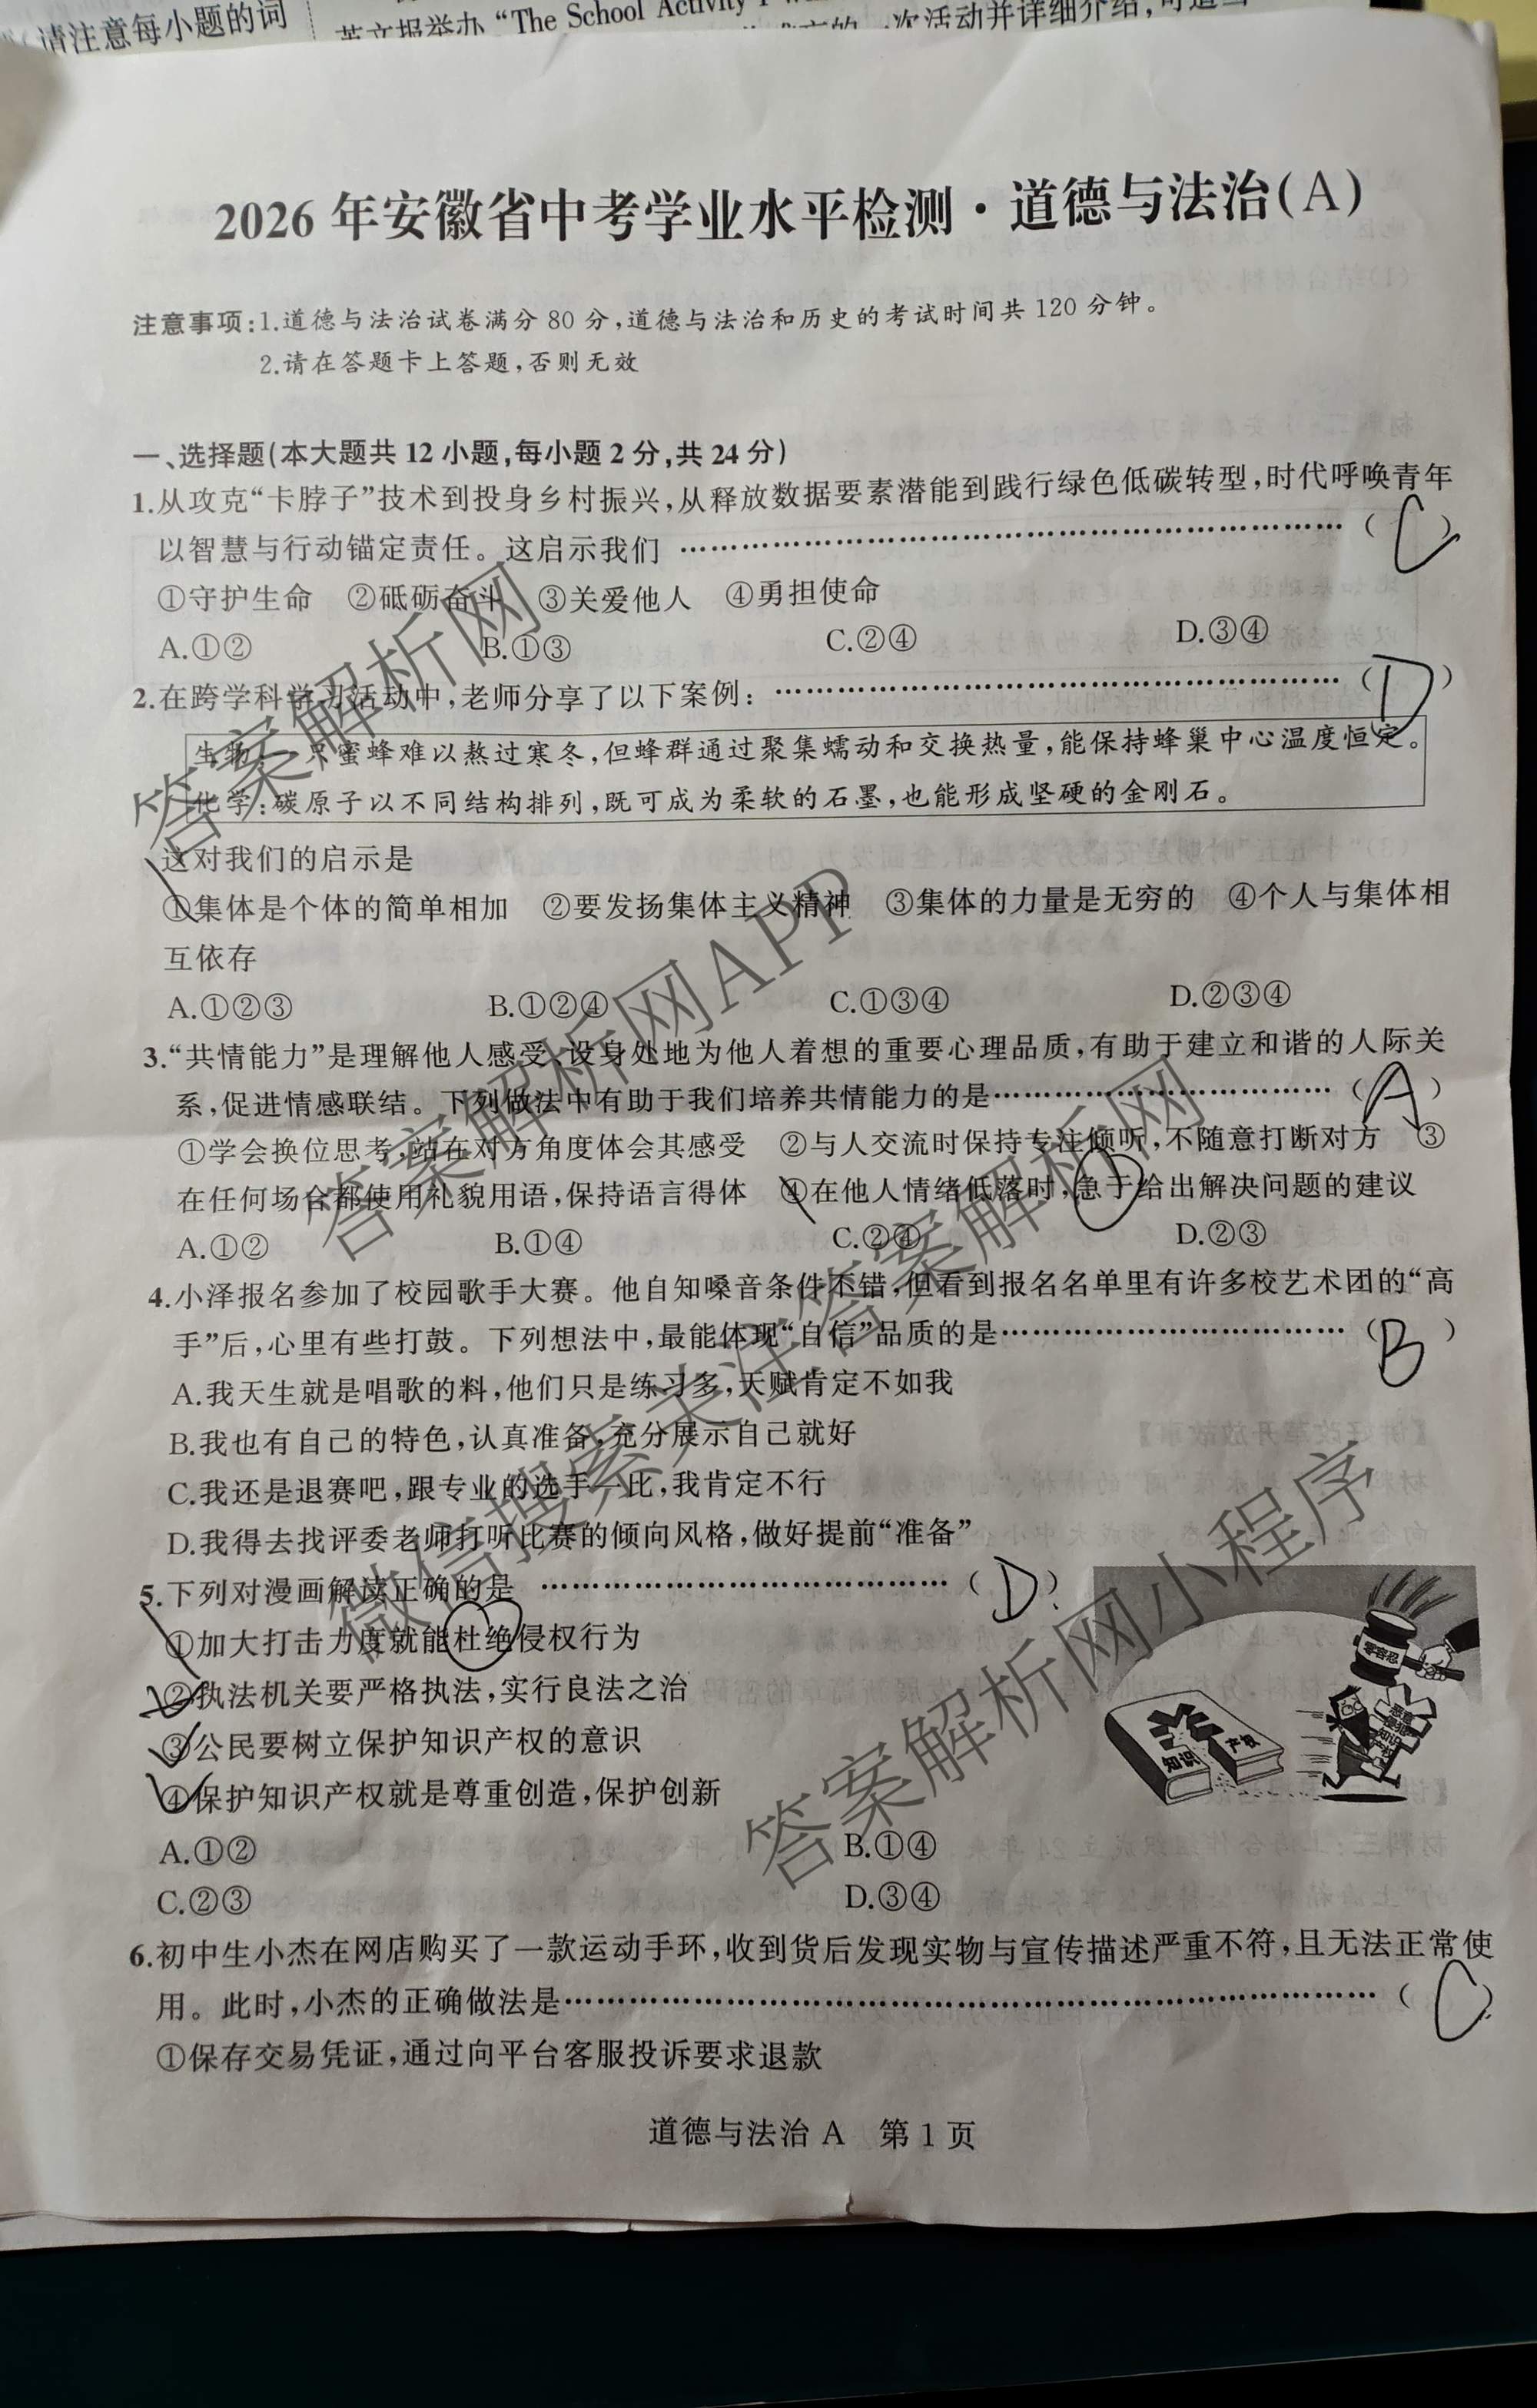 请注意每小题的词
英文报举办“The School Activity
次活动并详细介绍,可适当
2026年安徽省中考学业水平检测·道德与法治(A)
注意事项:1.道德与法治试卷满分80分,道德与法治和历史的考试时间共120分钟。
2.请在答题卡上答题,否则无效
一、选择题(本大题共12小题,每小题2分,共24分)
1.从攻克“卡脖子”技术到投身乡村振兴,从释放数据要素潜能到践行绿色低碳转型,时代呼唤青年
以智慧与行动锚定责任。这启示我们………………………………………………………( C )
①守护生命 ②砥砺奋斗 ③关爱他人 ④勇担使命
A.①② B.①③ C.②④ D.③④
2.在跨学科学习活动中,老师分享了以下案例:………………………………………………( D )
生物:一只蜜蜂难以熬过寒冬,但蜂群通过聚集蠕动和交换热量,能保持蜂巢中心温度恒定。
化学:碳原子以不同结构排列,既可成为柔软的石墨,也能形成坚硬的金刚石。
这对我们的启示是
①集体是个体的简单相加 ②要发扬集体主义精神 ③集体的力量是无穷的 ④个人与集体相
互依存
A.①②③ B.①②④ C.①③④ D.②③④
3.“共情能力”是理解他人感受、设身处地为他人着想的重要心理品质,有助于建立和谐的人际关
系,促进情感联结。下列做法中有助于我们培养共情能力的是……………………………( A )
①学会换位思考,站在对方角度体会其感受 ②与人交流时保持专注倾听,不随意打断对方 ③
在任何场合都使用礼貌用语,保持语言得体 ④在他人情绪低落时,急于给出解决问题的建议
A.①② B.①④ C.②④ D.②③
4.小泽报名参加了校园歌手大赛。他自知嗓音条件不错,但看到报名名单里有许多校艺术团的“高
手”后,心里有些打鼓。下列想法中,最能体现“自信”品质的是……………………………( B )
A.我天生就是唱歌的料,他们只是练习多,天赋肯定不如我
B.我也有自己的特色,认真准备,充分展示自己就好
C.我还是退赛吧,跟专业的选手一比,我肯定不行
D.我得去找评委老师打听比赛的倾向风格,做好提前“准备”
5.下列对漫画解读正确的是 …………………………………( D )
①加大打击力度就能杜绝侵权行为
②执法机关要严格执法,实行良法之治
③公民要树立保护知识产权的意识
④保护知识产权就是尊重创造,保护创新
零容忍
知识
产权
A.①② B.①④
C.②③ D.③④
6.初中生小杰在网店购买了一款运动手环,收到货后发现实物与宣传描述严重不符,且无法正常使
用。此时,小杰的正确做法是……………………………………………………………………( C )
①保存交易凭证,通过向平台客服投诉要求退款
道德与法治A 第1页
答案解析网
答案解析网APP
微信搜索关注:答案解析网
答案解析网小程序